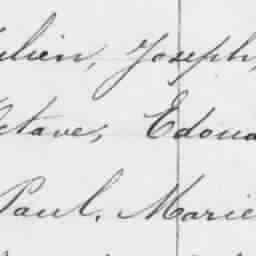 ulien, Joseph,
ctave, Edoua
Paul, Marie